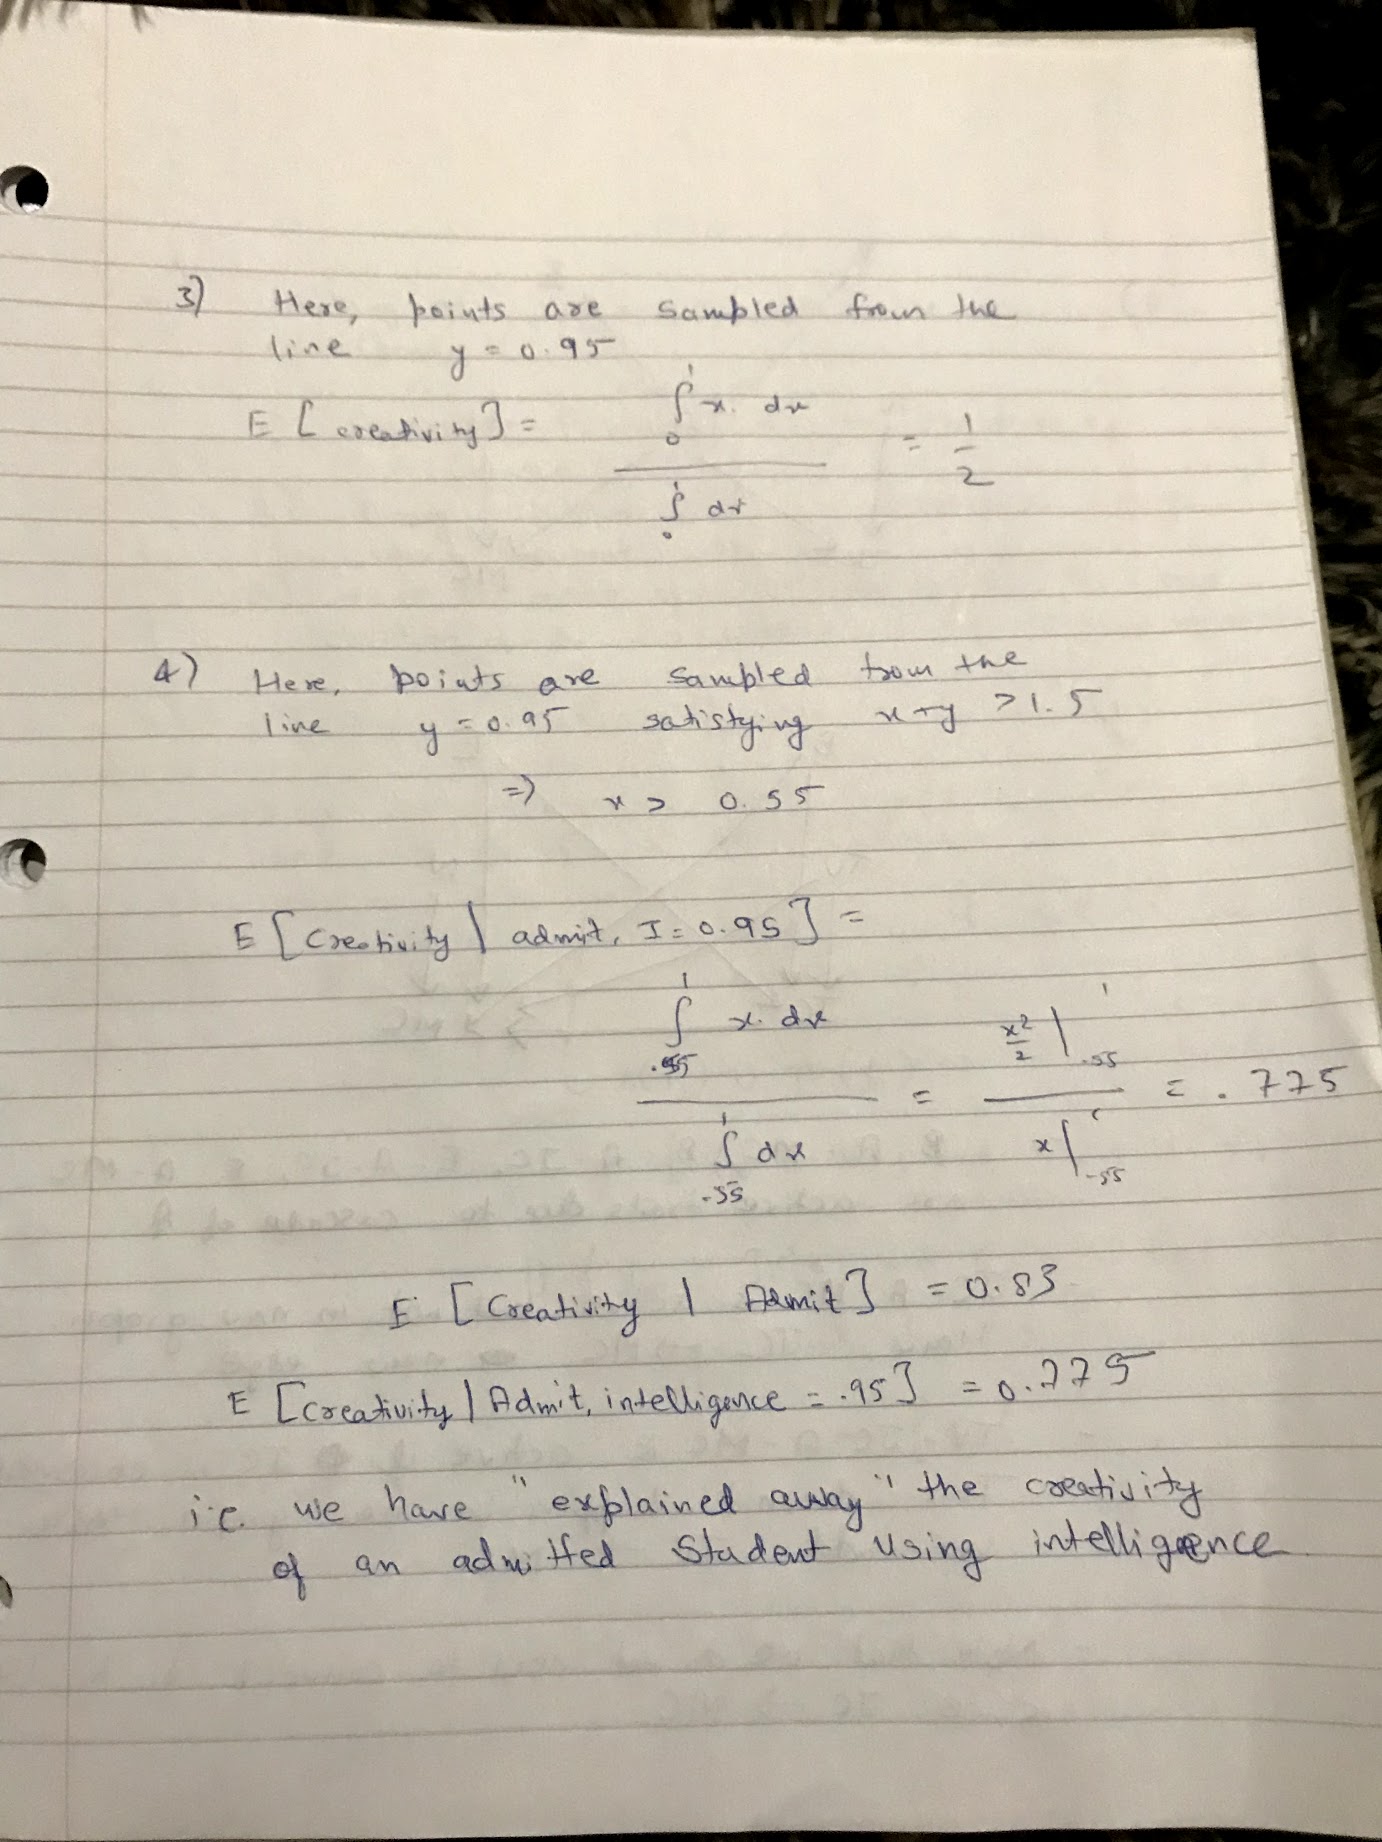 3) Here, points are sampled from the
line y = 0.95
E [creativity] = ∫₀¹ x. dx / ∫₀¹ dx = 1/2
4) Here, points are sampled from the
line y = 0.95 satisfying x+y > 1.5
=> x > 0.55
E [Creativity | admit, I = 0.95] =
∫.55¹ x. dx / ∫.55¹ dx = x²/2 |.55¹ / x|.55¹ = .775
E [Creativity | Admit] = 0.83
E [Creativity | Admit, intelligence = .95] = 0.775
i.e. we have "explained away" the creativity
of an admitted Student using intelligence